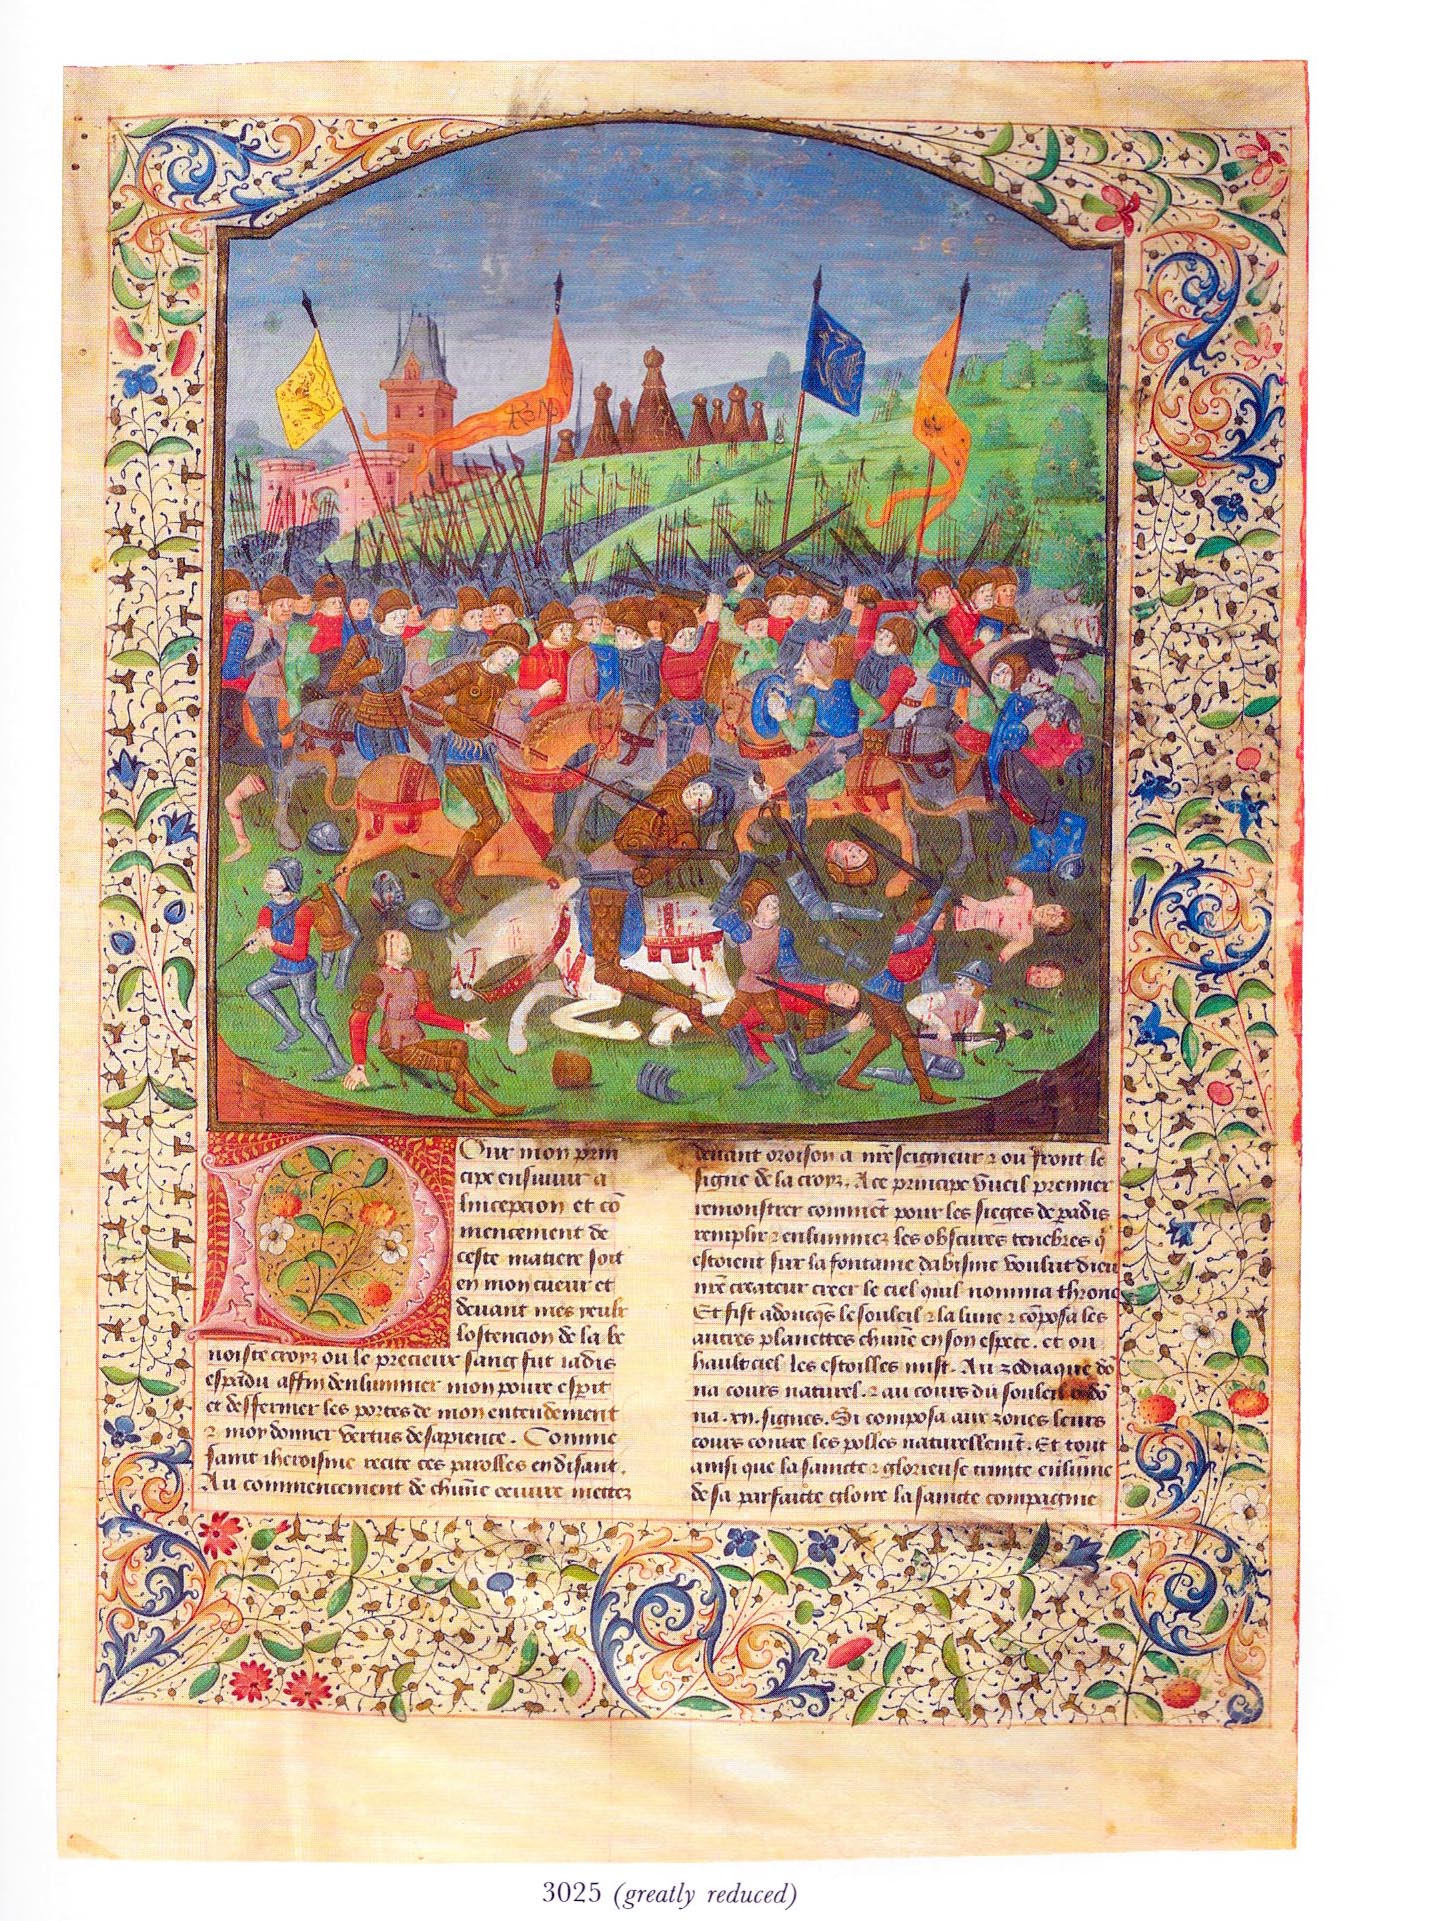 Pour mon prin
cipe ensuiuir a
lincepcion et co
mencement de
ceste matiere soit
en mon cueur et
deuant mes yeulx
lostencion de la be
noiste croyz ou le precieux sang fut iadis
espadu affin denluminer mon poure esprit
et deffermer les portes de mon entendement
⁊ moy donner vertus de sapience. Comme
saint iheroisme recite ces parolles en disant.
Au commencement de chune oeuure mettez
deuant oroison a nre seigneur ⁊ ou front le
signe de la croyz. A ce principe vueil premier
remonstrer comment pour les sieges de padis
remplir ⁊ enluminez les obscures tenebres q
estoient sur la fontaine dabisme voulut dieu
nre createur creer le ciel quil nomma throne
Et fist adoncqs le souleil ⁊ la lune ⁊ coposa les
autres planettes chune en son espece. et ou
hault ciel les estoilles mist. Au zodiaque do
na cours naturel. ⁊ au cours du souleil do
na .xii. signes. Si composa aux zones leurs
cours contre les polles naturellement. Et tout
ainsi que la saincte ⁊ glorieuse trinite enlumine
de sa parfaicte gloire la saincte compaignie
3025 (greatly reduced)